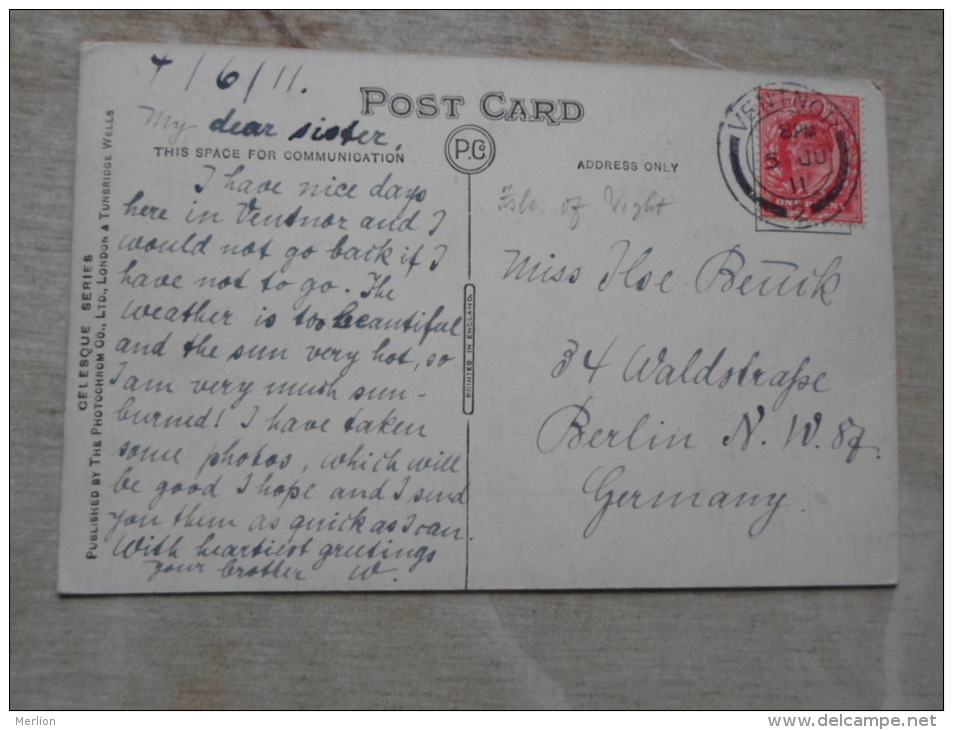 4/6/11.
POST CARD
My dear sister,
THIS SPACE FOR COMMUNICATION
P.Co
ADDRESS ONLY
I have nice days
here in Ventnor and I
would not go back if I
have not to go. The
weather is too beautiful
and the sun very hot, so
I am very much sun-
burned! I have taken
some photos, which will
be good I hope and I send
you them as quick as I can.
With heartiest greetings
your brother W.
of Vight
Miss Ilse
34 Waldstraße
Berlin N. W. 87.
Germany.
VENTNOR
8 PM
5 JU
11
2
ONE PENNY
PRINTED IN ENGLAND.
CELESQUE SERIES
PUBLISHED BY THE PHOTOCHROM CO., LTD., LONDON & TUNBRIDGE WELLS
Merlion
www.delcampe.net